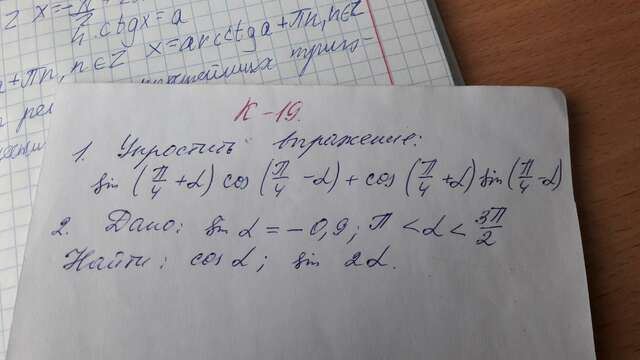 2 x=-π/2
4. ctgx=a
x=arcctga+πn, n∈Z
a+πn, n∈Z
К-19.
1. Упростить выражение:
sin(π/4+α)cos(π/4-α)+cos(π/4+α)sin(π/4-α)
2. Дано: sin α=-0,9; π<α<3π/2
Найти: cos α; sin 2α.